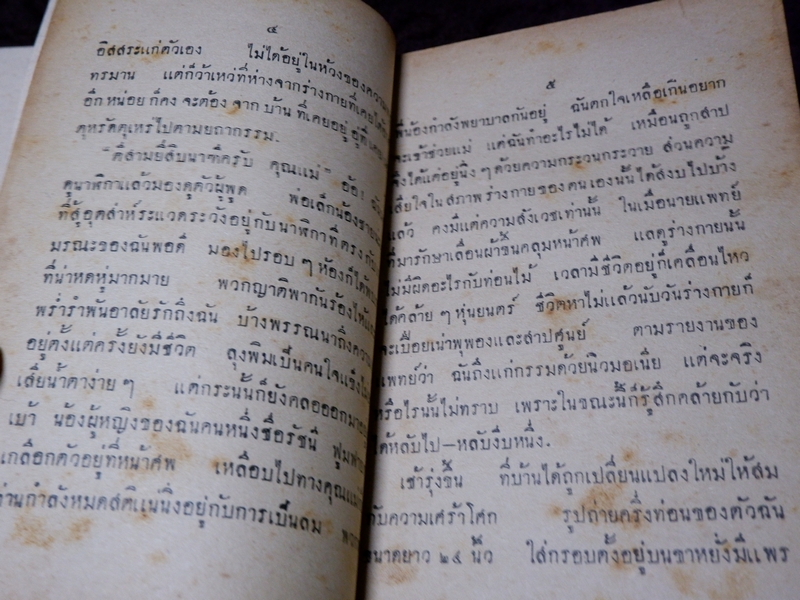 ๔
อิสสระแก่ตัวเอง ไม่ได้อยู่ในห้วงของความ
ทรมาน แต่ก็ว้าเหว่ที่ห่างจากร่างกายที่เคยได้
อีกหน่อยก็คง จะต้อง จาก บ้าน ที่เคยอยู่ อู่ที่เคย
ตุหรัดตุเหรไปตามยถากรรม.
"ตีสามยี่สิบนาฑีครับ คุณแม่" อ้อ!
ดูนาฬิกาแล้วมองดูตัวผู้พูด พ่อเล็กน้อง
ที่สู้อุตส่าห์ระแวดระวังอยู่กับนาฬิกาที่ตรงกับ
มรณะของฉันพอดี มองไปรอบๆห้องก็ได้
ที่น่าหดหู่มากมาย พวกญาติพากันร้องไห้
พร่ำรำพันอาลัยรักถึงฉัน บ้างพรรณนาถึงความ
อยู่ตั้งแต่ครั้งยังมีชีวิต ลุงพิมเป็นคนใจแข็ง
เสียน้ำตาง่ายๆ แต่กระนั้นก็ยังคลอออกมา
เบ้า น้องผู้หญิงของฉันคนหนึ่งชื่อรัชนี ฟูมฟาย
เกลือกตัวอยู่ที่หน้าศพ เหลือบไปทางคุณแม่
ท่านกำลังหมดสติแน่นิ่งอยู่กับการเป็นลม
๕
พี่น้องกำลังพยาบาลกันอยู่ ฉันตกใจเหลือเกินอยาก
จะเข้าช่วยแม่ แต่ฉันทำอะไรไม่ได้ เหมือนถูกสาป
จึงได้แต่อยู่นิ่งๆด้วยความกระวนกระวาย ส่วนความ
เสียใจในสภาพร่างกายของตนเองนั้นได้สงบไปบ้าง
แล้ว คงมีแต่ความสังเวชเท่านั้น ในเมื่อนายแพทย์
ที่มารักษาเลื่อนผ้าขึ้นคลุมหน้าศพ แลดูร่างกายนั้น
ไม่มีผิดอะไรกับท่อนไม้ เวลามีชีวิตอยู่ก็เคลื่อนไหว
ได้คล้ายๆหุ่นยนตร์ ชีวิตหาไม่แล้วนับวันร่างกายก็
จะเปื่อยเน่าพุพองและสาปศูนย์ ตามรายงานของ
แพทย์ว่า ฉันถึงแก่กรรมด้วยนิวมอเนีย แต่จะจริง
หรือไรนั้นไม่ทราบ เพราะในขณะนี้ก็รู้สึกคล้ายกับว่า
ได้หลับไป—หลับงีบหนึ่ง.
เช้ารุ่งขึ้น ที่บ้านได้ถูกเปลี่ยนแปลงใหม่ให้สม
กับความเศร้าโศก รูปถ่ายครึ่งท่อนของตัวฉัน
ขนาดยาว ๒๔ นิ้ว ใส่กรอบตั้งอยู่บนขาหยั่งมีแพร